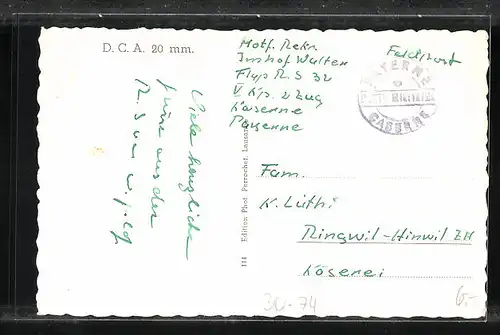 D. C. A. 20 mm.
Motf. Rekr.
Imhof Walter
Flap R. S 32
V Kp. 2 Zug
Kaserne
Payerne
Feldpost
PAYERNE
CASERNE
Viele herzliche
Grüsse aus der
R. S.
114 Edition Phot. Perrochet, Lausanne
Fam.
K. Lüthi
Ringwil-Hinwil ZH
Käserei
30-74
6.-